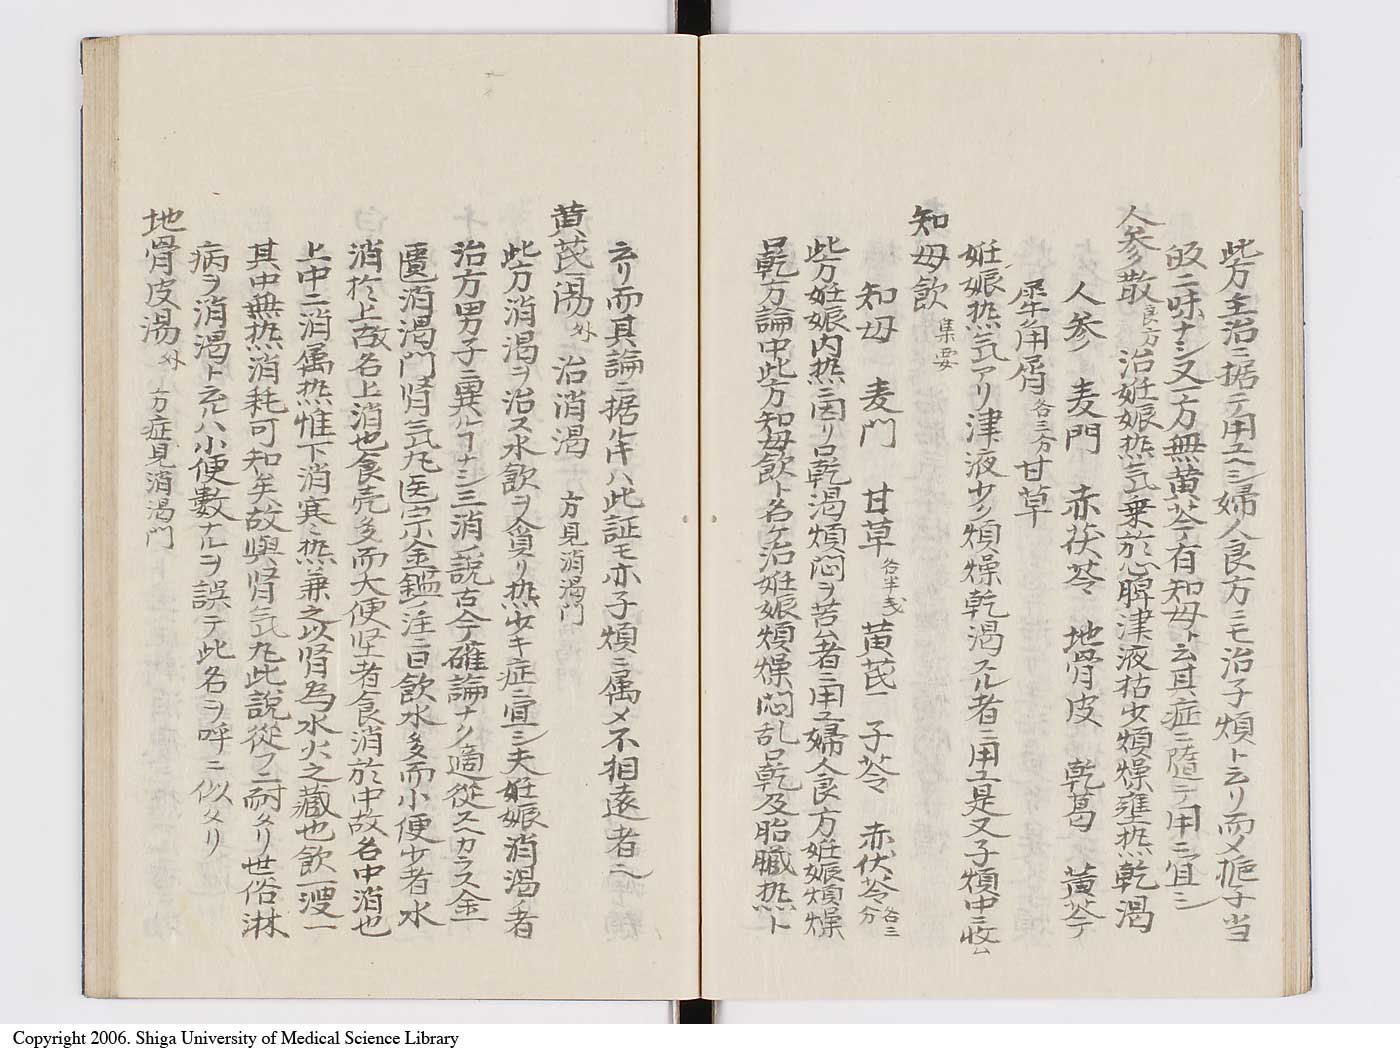 此方主治ニ据テ用ユヘシ婦人良方ニモ治子煩ト云リ而メ梔子当
皈二味ナシ又一方無黄芩有知母ト云其症ニ随テ用ニ宜シ
人参散 良方 治妊娠热気乗於心脾津液枯少煩燥壅热乾渇
人参 麦門 赤茯苓 地骨皮 乾葛 黄芩
犀角屑 各三分 甘草
妊娠热気アリ津液少ク煩燥乾渇スル者ニ用ユ是又子煩中ニ收ム
知母飲 集要
知母 麦門 甘草 各半戋 黄芪 子芩 赤伏苓 各三分
此方妊娠内热ニ因リ口乾渇煩悶ヲ苦ム者ニ用ユ婦人良方妊娠煩燥
口乾方論中此方知母飲ト名ケ治妊娠煩燥悶乱口乾及胎臓热ト
云リ而其論ニ据ル寸ハ此証モ亦子煩ニ属メ不相遠者也
黄芪湯 外 治消渇 方見消渇門
此方消渇ヲ治ス水飲ヲ貪リ热少キ症ニ宜シ夫妊娠消渇ノ者
治方男子ニ異ルヿナシ三消ノ説古今確論ナク適從スヘカラス金
匱消渇門肾気丸医宗金鑑ノ注ニ曰飲水多而小便少者水
消於上故名上消也食壳多而大便坚者食消於中故名中消也
上中二消属热惟下消寒ミ热兼之以肾為水火之藏也飲一溲一
其中無热消耗可知矣故與肾気丸此説從フニ耐タリ世俗淋
病ヲ消渇ト云ルハ小便數ナルヲ誤テ此名ヲ呼ニ似タリ
地骨皮湯 外 方症見消渇門
Copyright 2006. Shiga University of Medical Science Library